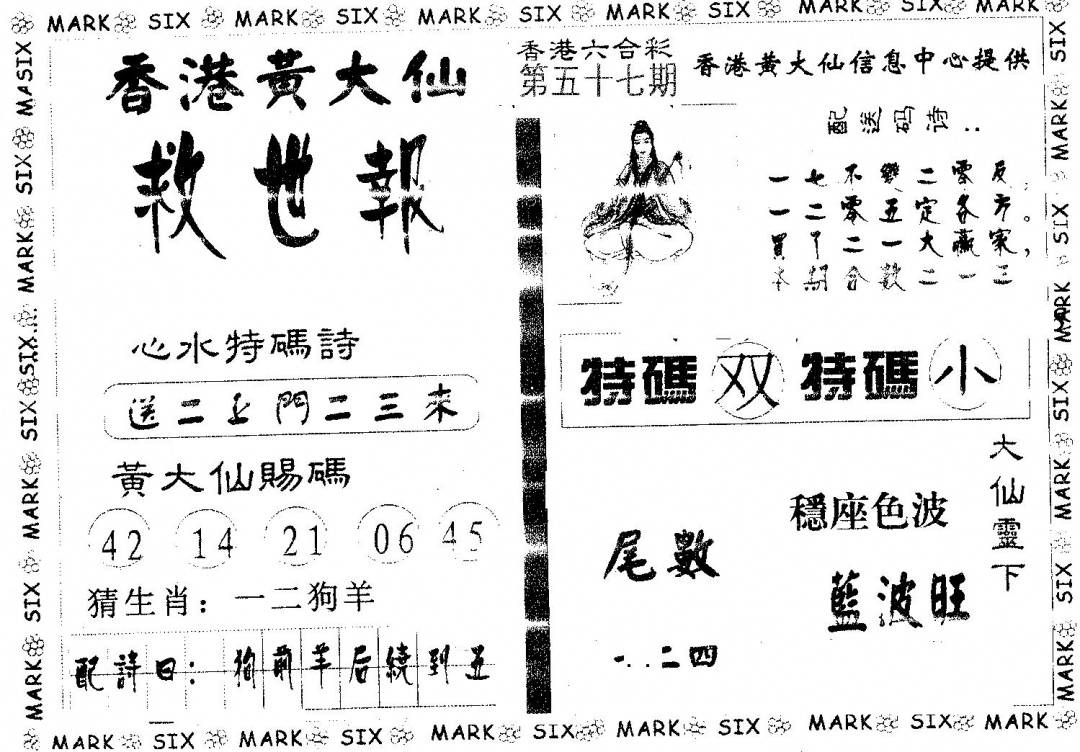 MARK SIX MARK SIX MARK SIX MARK SIX MARK SIX MARK
香港黃大仙
救世報
心水特碼詩
送二上門二三來
黃大仙賜碼
42 14 21 06 45
猜生肖：一二狗羊
配詩曰：狗前羊后繞到五
香港六合彩
第五十七期
香港黄大仙信息中心提供
配送码诗：
一七不變二零反，
一二零五定各方。
買下二一大贏家，
本期合數二一三
特碼 双 特碼 小
大仙靈下
穩座色波
藍波旺
尾數
一.二四
MARK SIX MARK SIX MARK SIX MARK SIX MARK SIX MARK
MARK SIX MARK SIX MARK SIX MASIX
SIX MARK SIX MARK SIX MARK SIX MARK